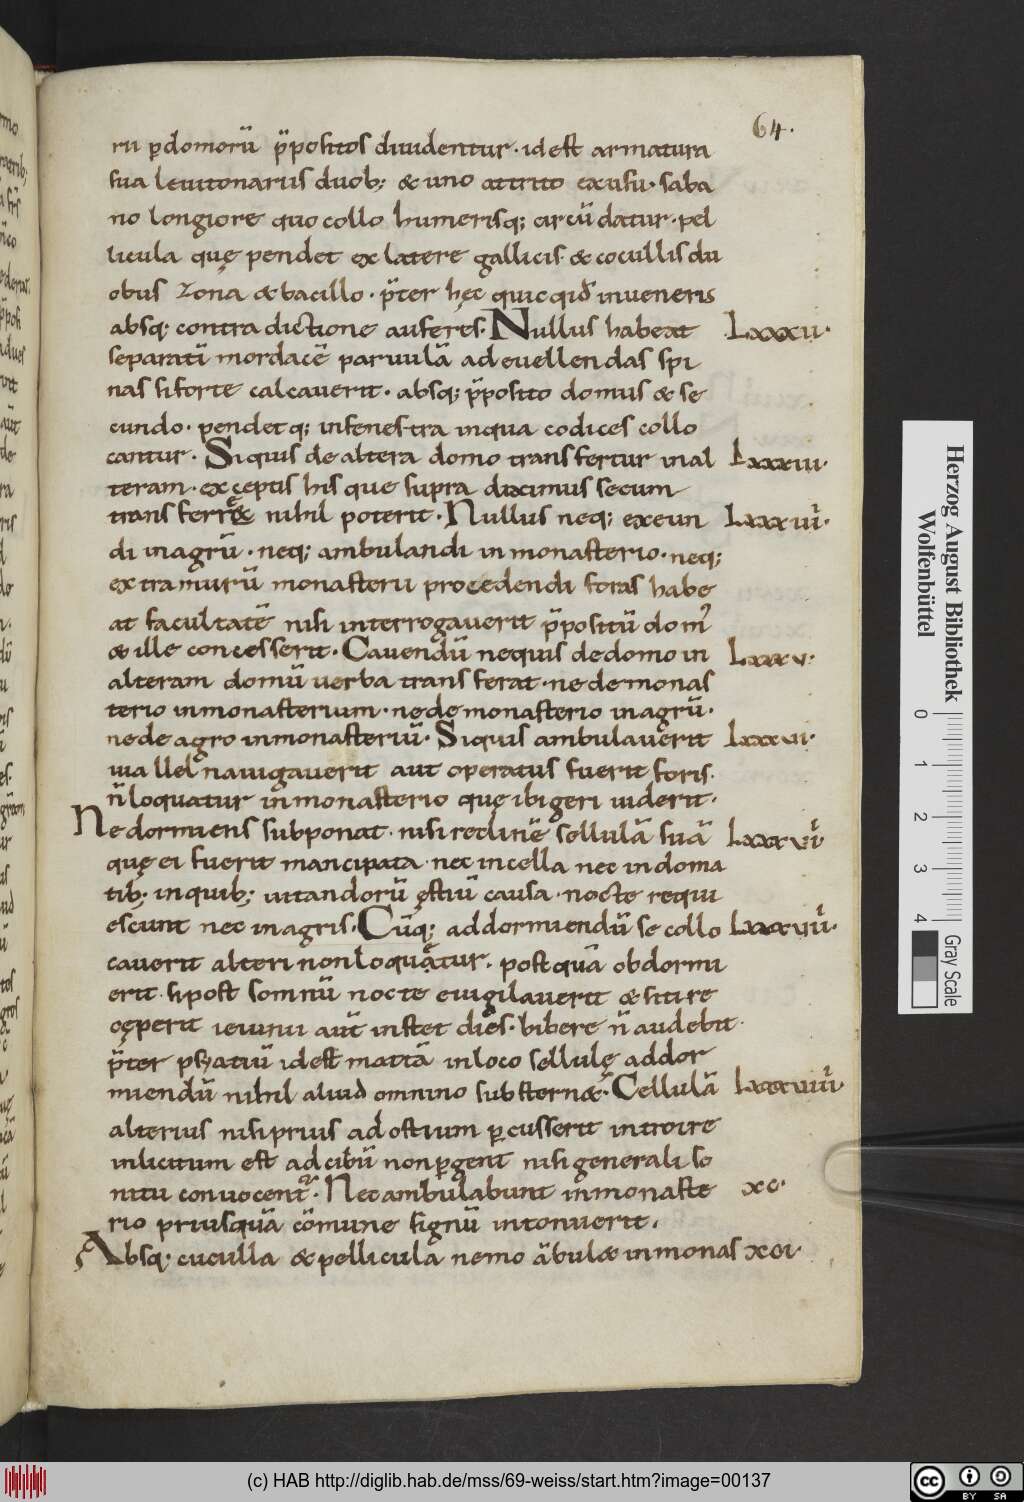 64.
ru ꝑdomorū p̄positos diuidentur · id est armatura
sua leuitonarus duob; & uno attrito ex usu · saba
no longiore quo collo humerisq; circūdatur · pel
licula quę pendet ex latere gallicis & cocullis du
obus zona & bacillo · p̄ter hęc quicqid inueneris
absq; contradictione auferes · Nullus habeat Lxxxii·
separatū mordacē paruulā ad euellendas spi
nas si forte calcauerit · absq; p̄posito domus & se
cundo · pendetq; in fenestra in qua codices collo
cantur · Siquis de altera domo transfertur in al Lxxxiii·
teram · exceptis his que supra diximus secum
transferr& nihil poterit · Nullus neq; exeun Lxxxiiii·
di in agrū · neq; ambulandi in monasterio · neq;
extra murū monasterii procedendi foras habe
at facultatē nisi interrogauerit p̄positū dom̄
& ille concesserit · Cauendū nequis de domo in Lxxxv·
alteram domū uerba transferat · ne de monas
terio in monasterium · ne de monasterio in agrū ·
ne de agro in monasteriū · Siquis ambulauerit Lxxxvi·
uia uel nauigauerit aut operatus fuerit foris ·
n̄ loquatur in monasterio quę ibi geri uiderit ·
Ne dormiens subponat · nisi reclinē sellulā suā Lxxxvii
quę ei fuerit mancipata · nec in cella nec in doma
tib; in quib; uitandorū ęstiū causa · nocte requi
escunt nec in agris · Cūq; ad dormiendū se collo Lxxxviii·
cauerit alteri non loquatur · postquā obdormi
erit · si post somnū nocte euigilauerit & sitire
cęperit ieiunii aūt instet dies · bibere n̄ audebit ·
p̄ter psiatiū id est mattā in loco sellulę ad dor
miendū nihil aliud omnino substern& · Cellulā Lxxxviiii·
alterius nisi prius ad ostium ꝑcusserit introire
inlicitum est ad cibū non ꝑgent nisi generali so
nitu conuocent᷑ · Nec ambulabunt in monaste xc·
rio priusquā cōmune signū intonuerit ·
Absq; cuculla & pellicula nemo ābul& in monas xci·
Herzog August Bibliothek
Wolfenbüttel
0 1 2 3 4
Gray Scale
(c) HAB http://diglib.hab.de/mss/69-weiss/start.htm?image=00137
cc BY SA